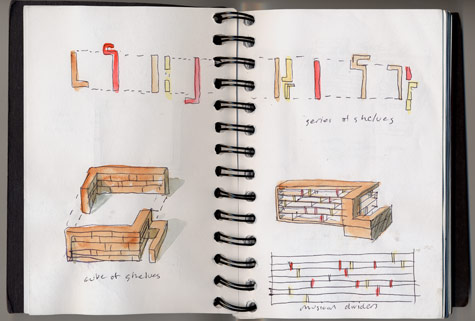 series of shelves
cube of shelves
musical divider